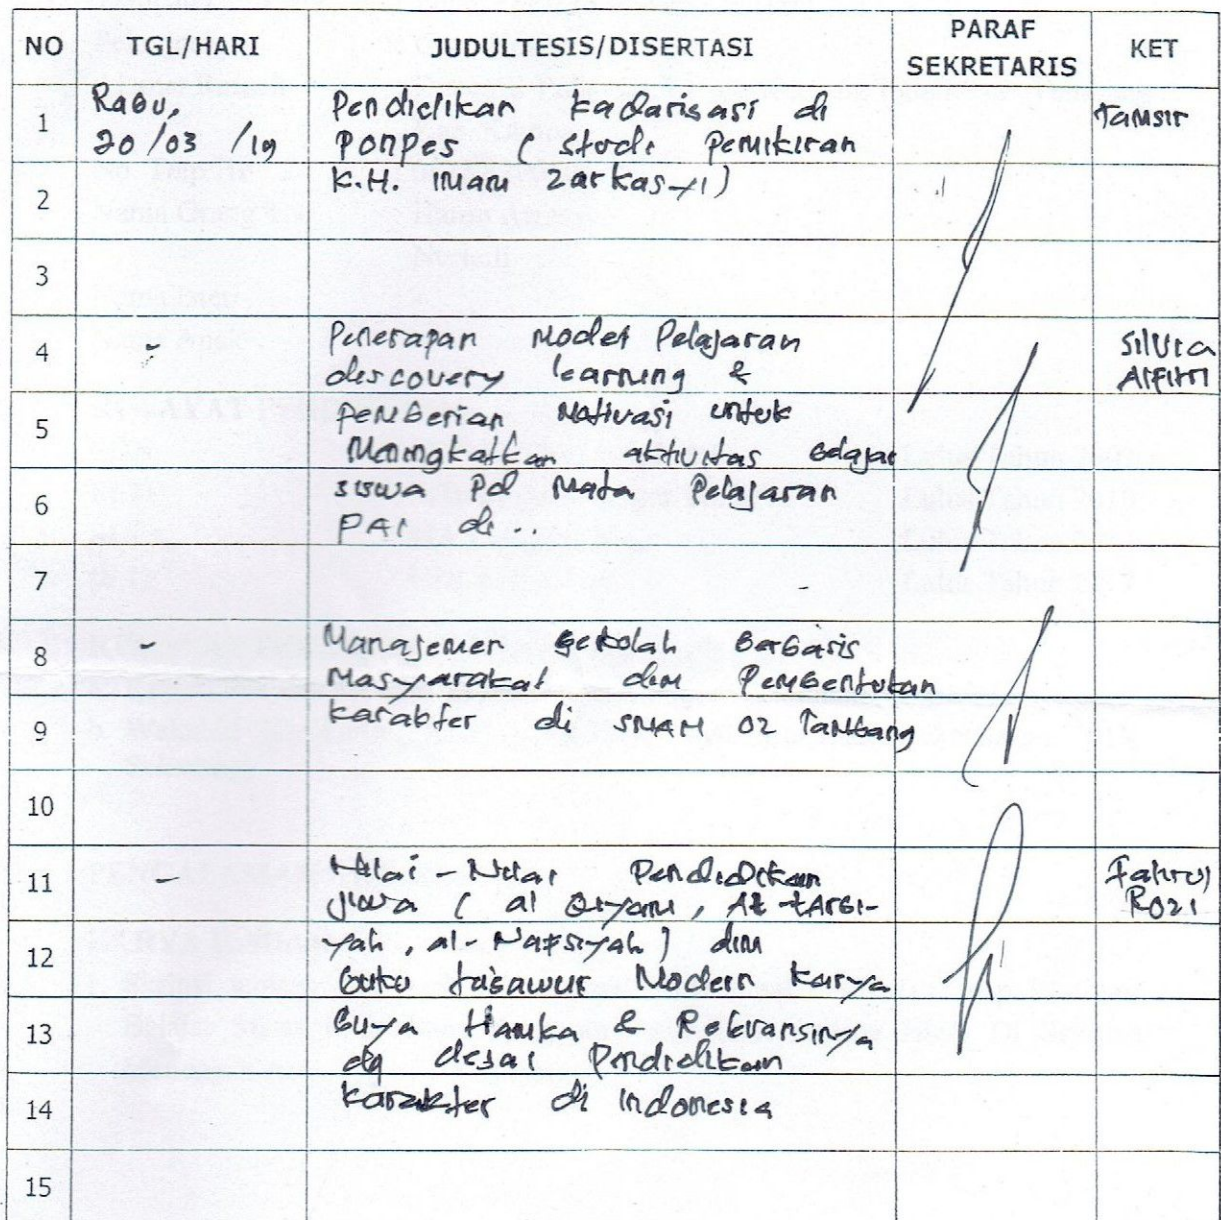 NO TGL/HARI JUDULTESIS/DISERTASI PARAF SEKRETARIS KET
1 Rabu, Pendidikan Kadarisasi di Tamsir
20/03/19 Ponpes ( Studi Pemikiran
2 K.H. Imam Zarkasyi)
3
4 - Penerapan Model Pelajaran Silvia
discovery learning &
5 pemberian Motivasi untuk
Meningkatkan aktivitas belajar
6 siswa Pd Mata Pelajaran
PAI di ...
7
8 - Manajemen Sekolah Berbasis
Masyarakat dlm Pembentukan
9 Karakter di SMAN 02 Tambang
10
11 - Nilai - Nilai Pendidikan Fahrul
jiwa ( al , At-tarbi- Rozi
12 yah, al-Nafsiyah ) dlm
buku tasawuf Modern Karya
13 Buya Hamka & Relevansinya
dg Pendidikan
14 karakter di Indonesia
15